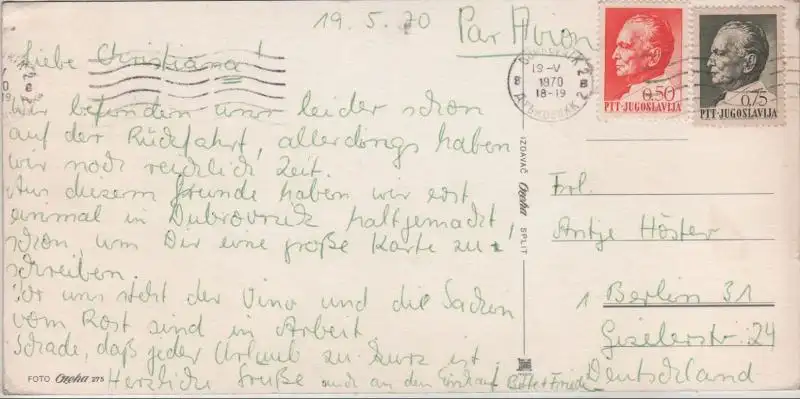 19.5.70
Par Avion
Liebe Christiana!
Wir befinden uns leider schon
auf der Rückfahrt, allerdings haben
wir noch reichlich Zeit.
Aus diesem Grunde haben wir erst
einmal in Dubrovnik haltgemacht,
schon, um Dir eine große Karte zu
schreiben.
Vor uns steht der Vino und die Sachen
vom Rost sind in Arbeit
Schade, daß jeder Urlaub zu kurz ist!
Herzliche Grüße auch an den
FOTO Ozeha 275
IZDAVAČ Ozeha SPLIT
DUBROVNIK 2
19-V
1970
18-19
8 8
ДУБРОВНИК 2
0,50
PTT-JUGOSLAVIJA
0,75
PTT-JUGOSLAVIJA
Frl.
Antje Höster
1 Berlin 31
Giselerstr 24
Deutschland